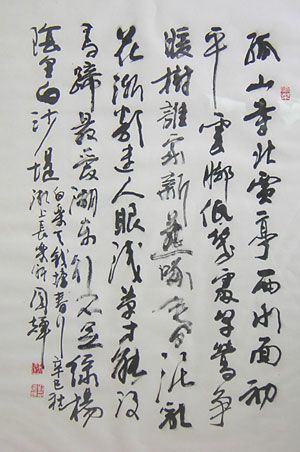 孤山寺北賈亭西水面初
平雲腳低幾處早鶯爭
暖樹誰家新燕啄春泥亂
花漸欲迷人眼淺草才能沒
馬蹄最愛湖東行不足綠楊
陰里白沙堤
白樂天錢塘春行 辛巳秋